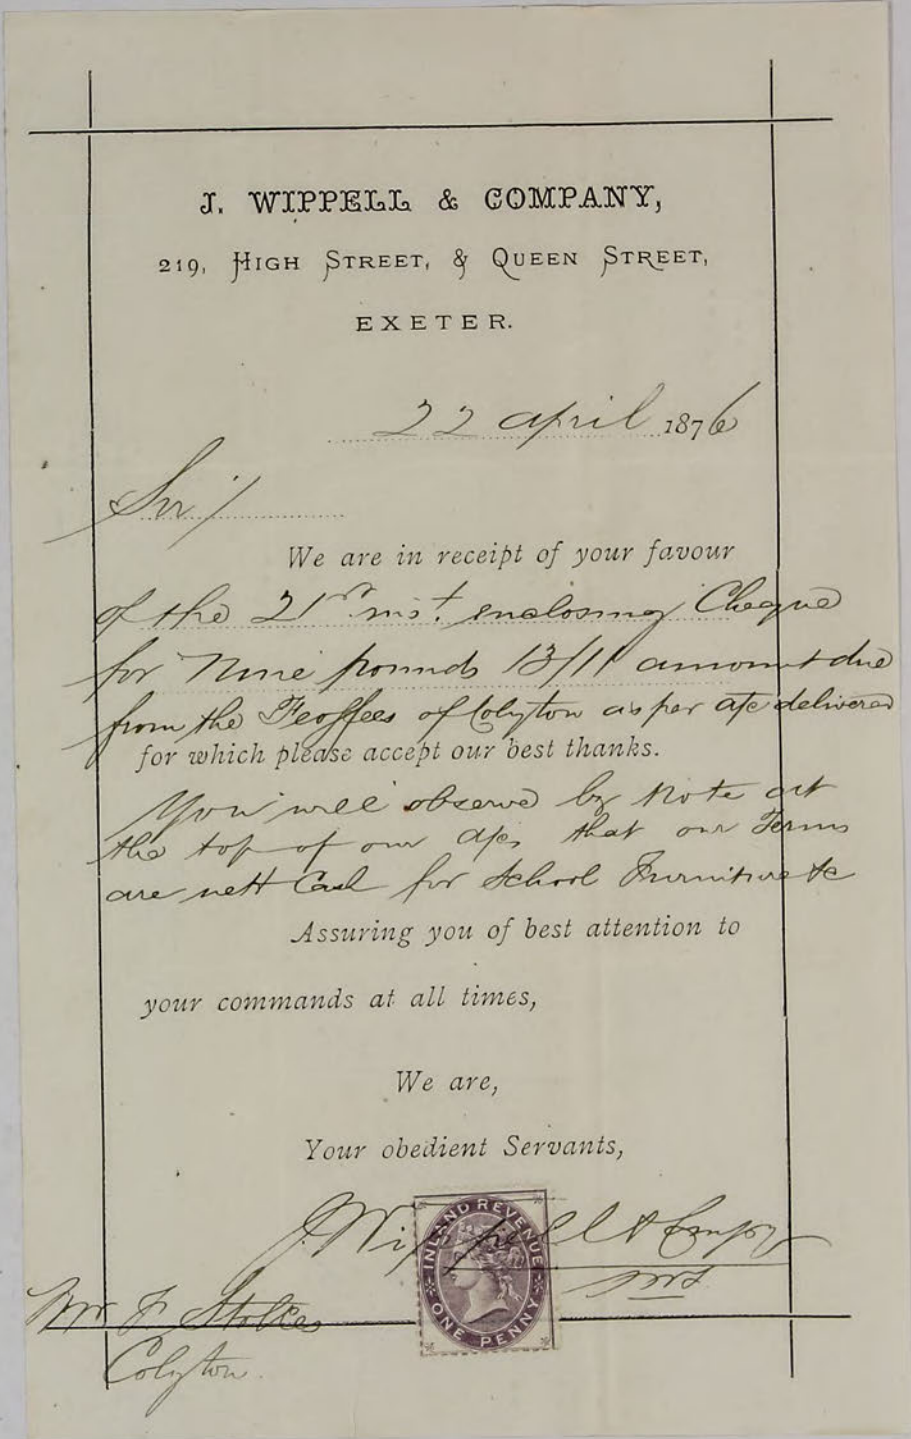 J. WIPPELL & COMPANY,
219, HIGH STREET, & QUEEN STREET,
EXETER.
22 april 1876
Sir/
We are in receipt of your favour
of the 21st inst. enclosing Cheque
for Nine pounds 13/11 amount due
from the Feoffees of Colyton as per a/c delivered
for which please accept our best thanks.
You will observe by Note at
the top of our a/cs that our Terms
are nett Cash for School Furniture &c
Assuring you of best attention to
your commands at all times,
We are,
Your obedient Servants,
J Wippell & Compy
INLAND REVENUE
ONE PENNY
Mr F Stokes
Colyton.